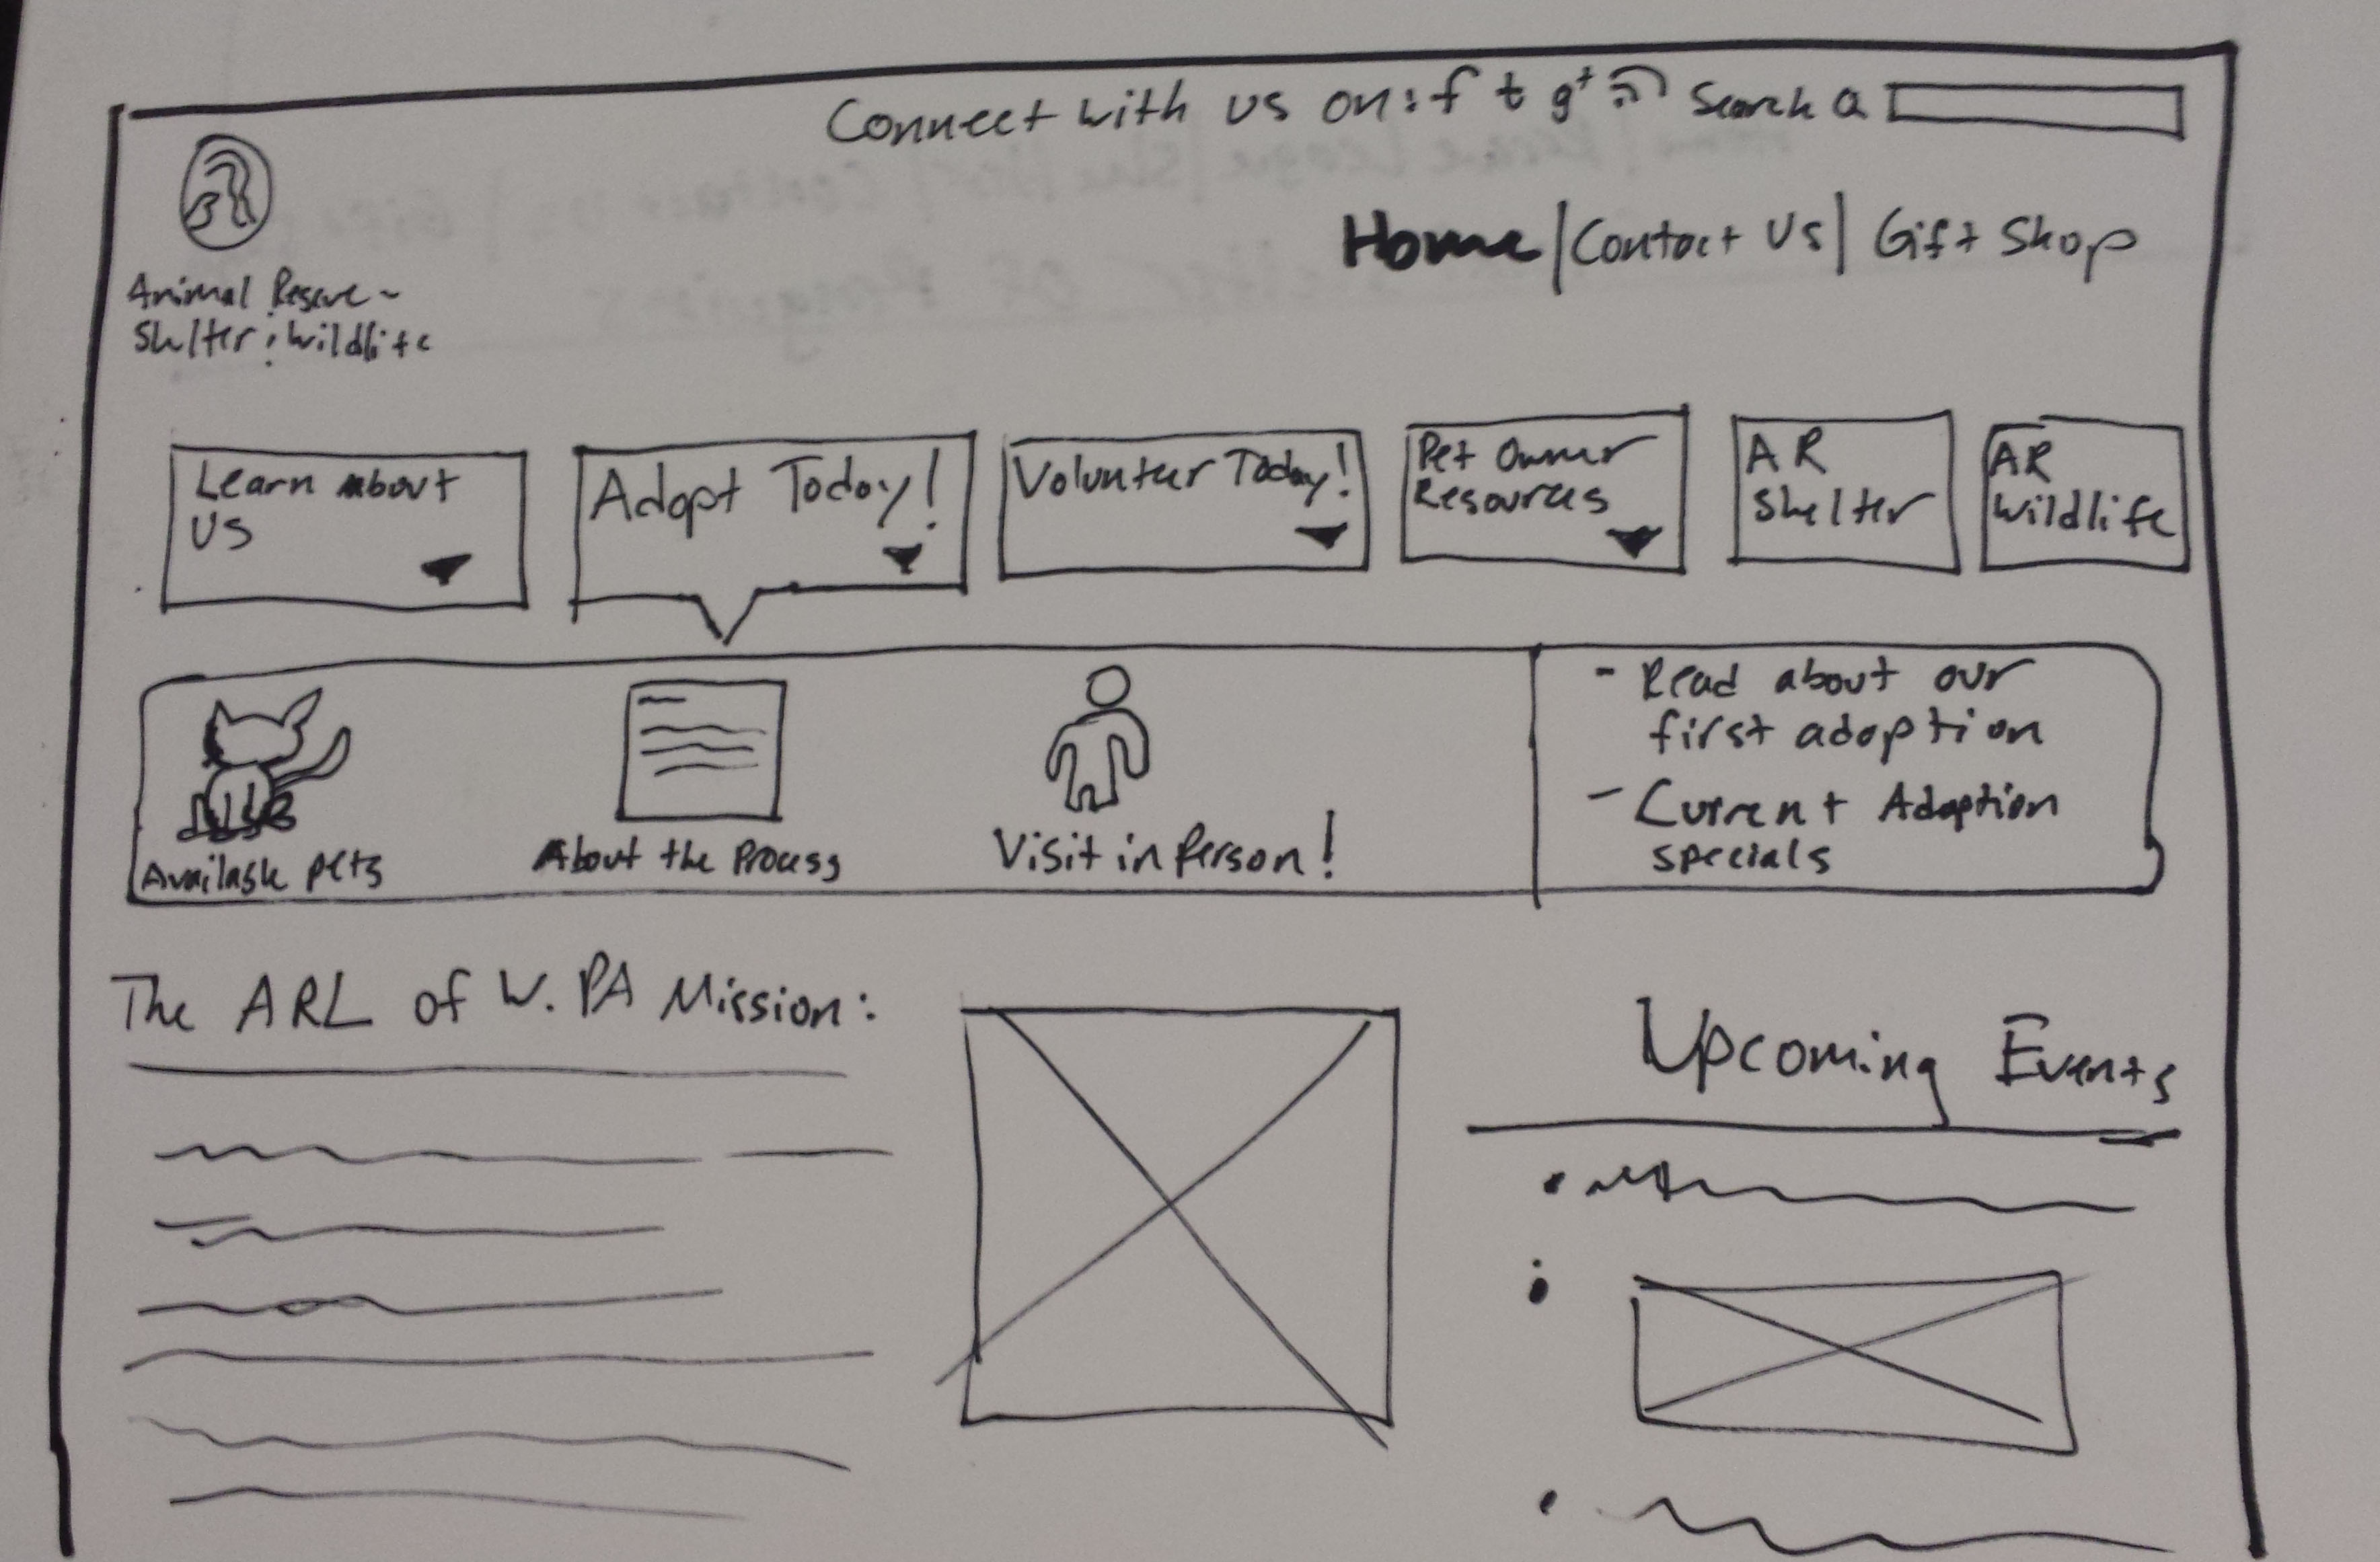 Connect with us on: f t g+ Search
Home | Contact Us | Gift Shop
Animal Rescue ~
Shelter & Wildlife
Learn About
US
Adopt Today!
Volunteer Today!
Pet Owner
Resources
AR
Shelter
AR
Wildlife
Available Pets
About the Process
Visit in Person!
- Read about our
first adoption
- Current Adoption
specials
The ARL of W. PA Mission:
Upcoming Events